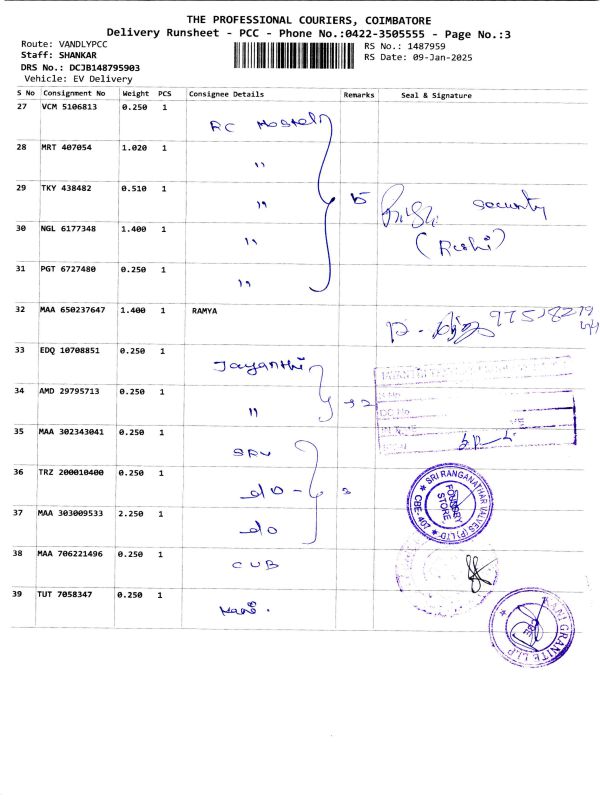 THE PROFESSIONAL COURIERS, COIMBATORE
Delivery Runsheet - PCC - Phone No.:0422-3505555 - Page No.:3
Route: VANDLYPCC
Staff: SHANKAR
DRS No.: DCJB148795903
Vehicle: EV Delivery
RS No.: 1487959
RS Date: 09-Jan-2025
S No Consignment No Weight PCS Consignee Details Remarks Seal & Signature
27 VCM 5106813 0.250 1 RC Hostel
28 MRT 407054 1.020 1 "
29 TKY 438482 0.510 1 " 5 security
30 NGL 6177348 1.400 1 " (Rishi)
31 PGT 6727480 0.250 1 "
32 MAA 650237647 1.400 1 RAMYA
33 EDQ 10708851 0.250 1 Jayanthi
34 AMD 29795713 0.250 1 " 2
35 MAA 302343041 0.250 1 SRV
36 TRZ 200010400 0.250 1 do 3
37 MAA 303009533 2.250 1 do
38 MAA 706221496 0.250 1 CUB
39 TUT 7058347 0.250 1
SRI RANGANATHAR VALVES (P) LTD
CBE-407
FOUNDRY
STORE
KANI GRANITE LLP